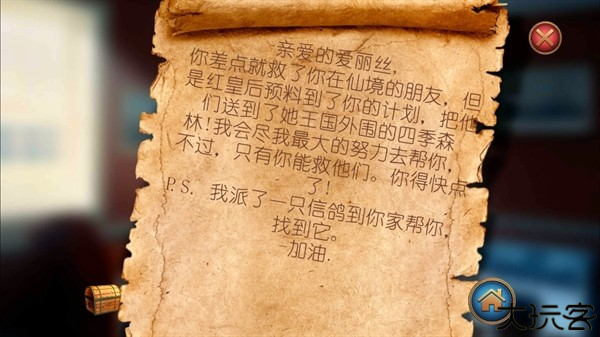 亲爱的爱丽丝,
你差点就救了你在仙境的朋友，但
是红皇后预料到了你的计划，把他
们送到了她王国外围的四季森
林!我会尽我最大的努力去帮你，
不过，只有你能救他们。你得快点
了!
P.S. 我派了一只信鸽到你家帮你，
找到它。
加油.
大玩客